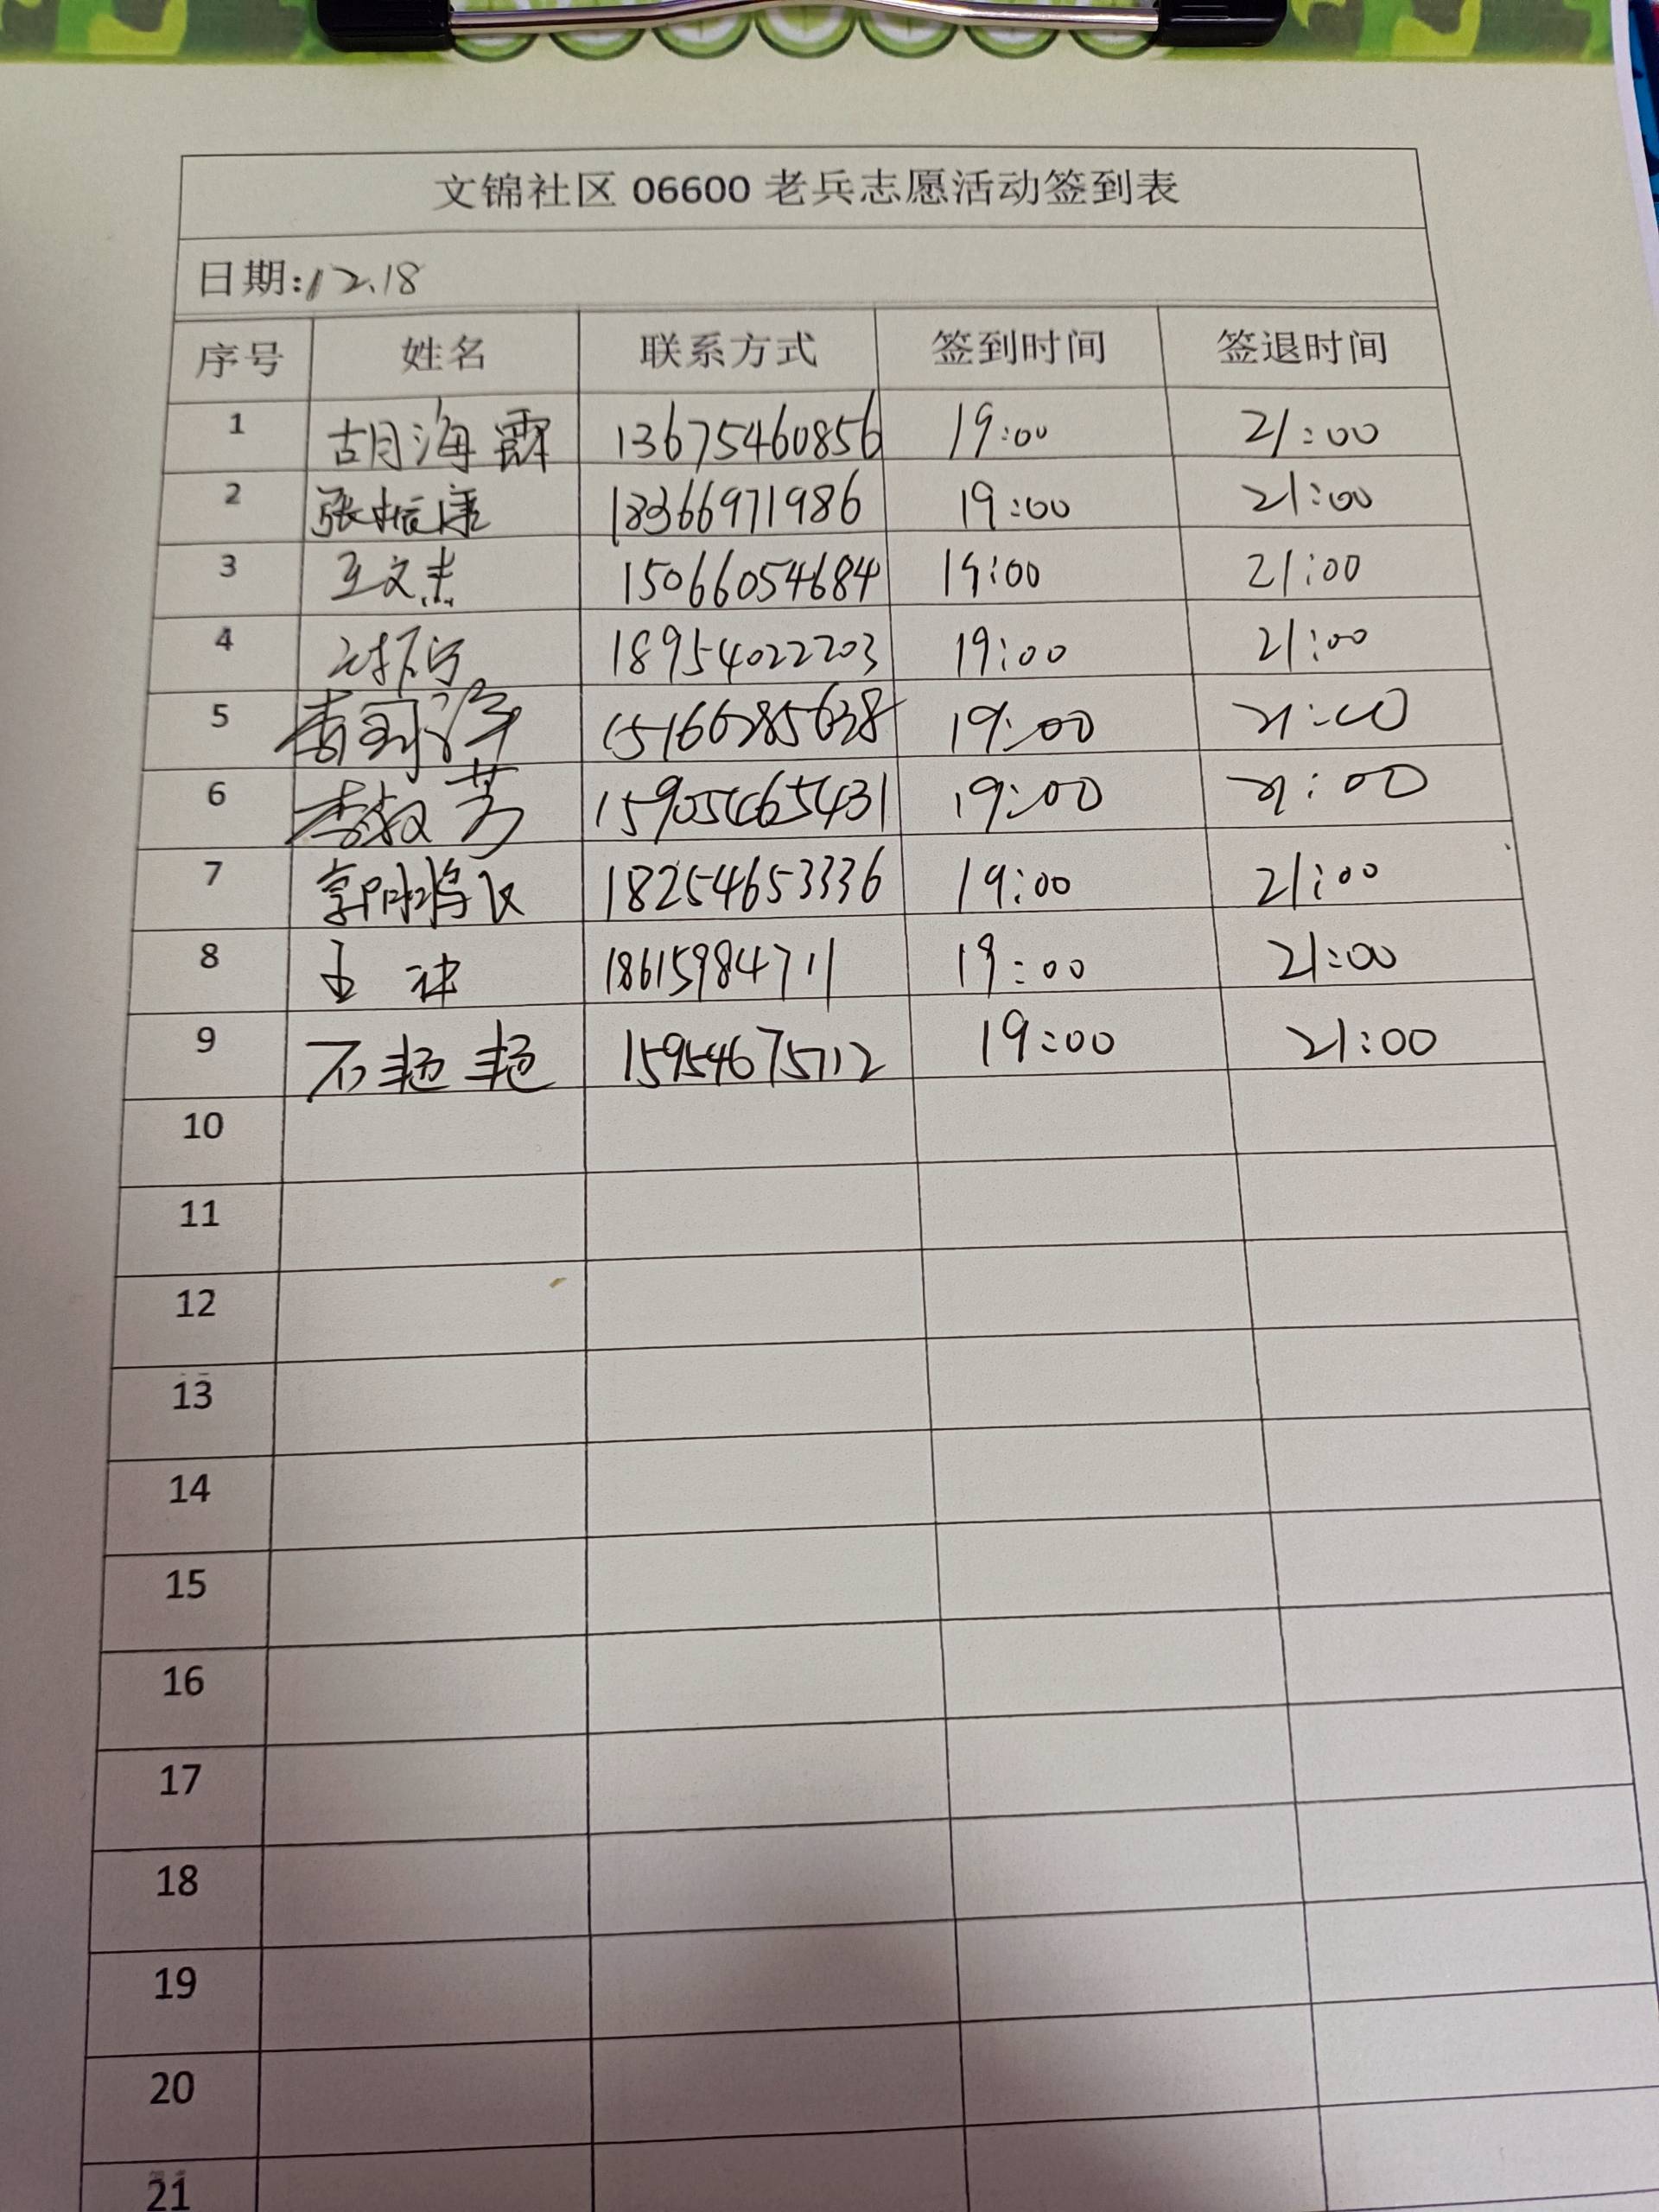 文锦社区 06600 老兵志愿活动签到表
日期:12.18
序号 姓名 联系方式 签到时间 签退时间
1 胡海霖 13675460856 19:00 21:00
2 张振康 18366971986 19:00 21:00
3 王文杰 15066054684 19:00 21:00
4 18954022203 19:00 21:00
5 15166285638 19:00 21:00
6 李淑芳 15905465431 19:00 21:00
7 18254653336 19:00 21:00
8 18615984711 19:00 21:00
9 石艳艳 15954675712 19:00 21:00
10
11
12
13
14
15
16
17
18
19
20
21